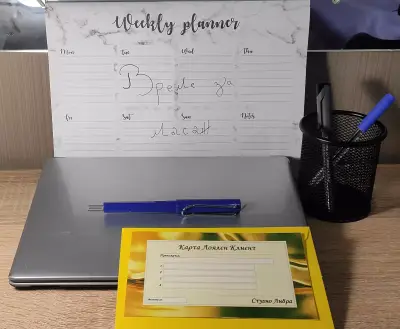 Weekly planner
Mon Tue Wed Thu
Време за
Fri Sat Sun Notes
масаж
Карта Лоялен Клиент
Студио